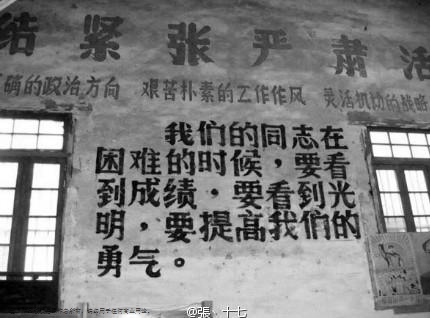 结 紧 张 严 肃 活
确的政治方向 艰苦朴素的工作作风 灵活机动的战略
我们的同志在
困难的时候，要看
到成绩，要看到光
明，要提高我们的
勇气。
@張_十七